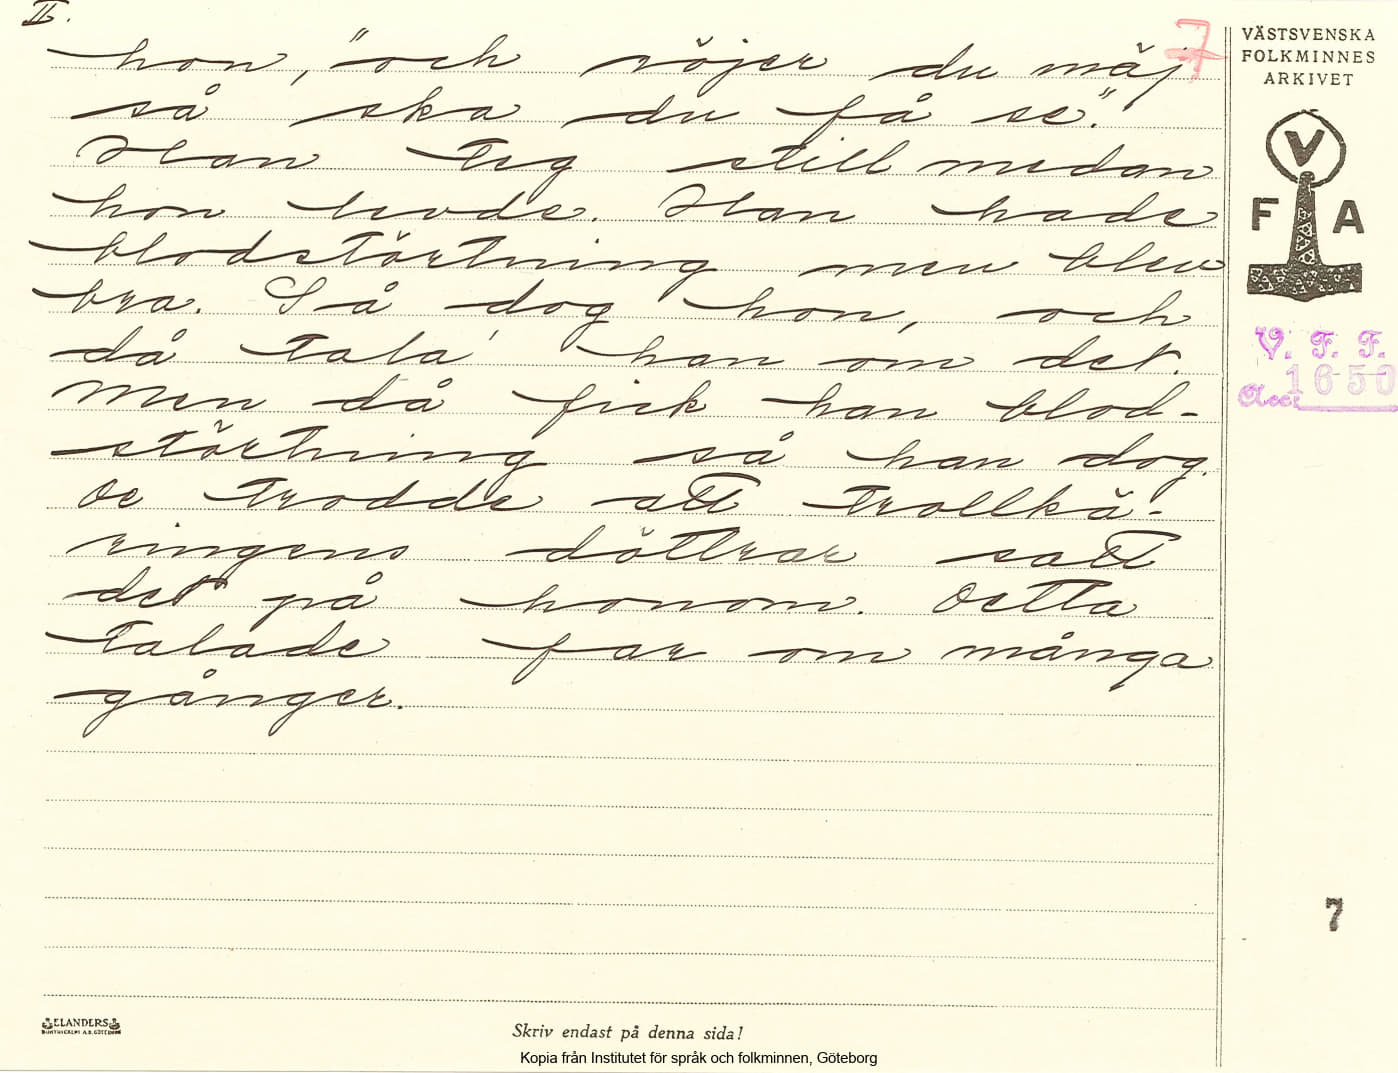 II.
hon, "och röjer du mäj
så ska du få se."
Han teg still medan
hon levde. Han hade
blodstörtning men blev
bra. Så dog hon, och
då tala' han om det.
Men då fick han blod-
störtning så han dog.
De trodde att trollkä-
ringens döttrar satt
det på honom. Detta
talade far om många
gånger.
7
VÄSTSVENSKA
FOLKMINNES
ARKIVET
V
F A
V. F. F.
Acc: 1650
7
ELANDERS
Skriv endast på denna sida!
Kopia från Institutet för språk och folkminnen, Göteborg